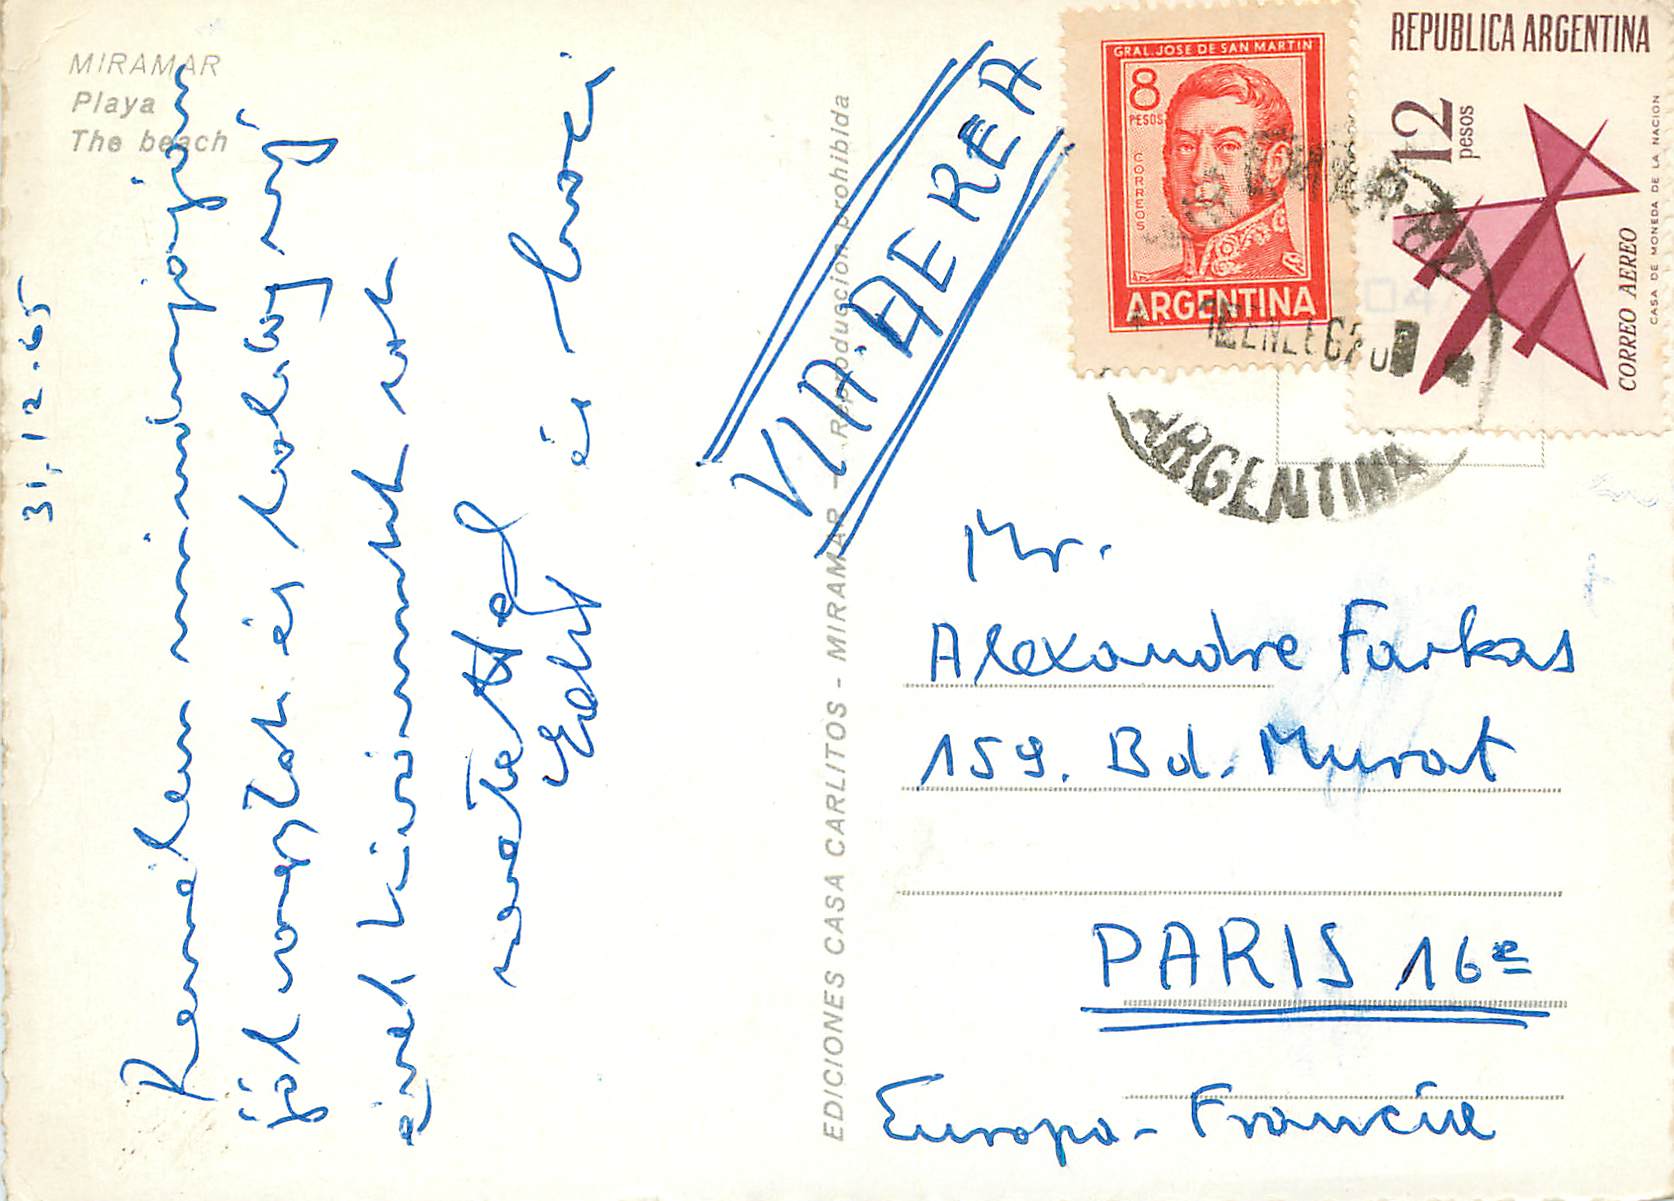 MIRAMAR
Playa
The beach
31.12.65
Remélem mindnyájan
jól vagytok és boldog új
évet kívánunk sok
szeretettel
Edit és Laci
EDICIONES CASA CARLITOS - MIRAMAR - Reproducción prohibida
VIA AEREA
GRAL. JOSE DE SAN MARTIN
8
PESOS
CORREOS
ARGENTINA
REPUBLICA ARGENTINA
12
pesos
CORREO AEREO
CASA DE MONEDA DE LA NACION
ARGENTINA
Mr.
Alexandre Farkas
159. Bd. Murat
PARIS 16e
Europa - Francia